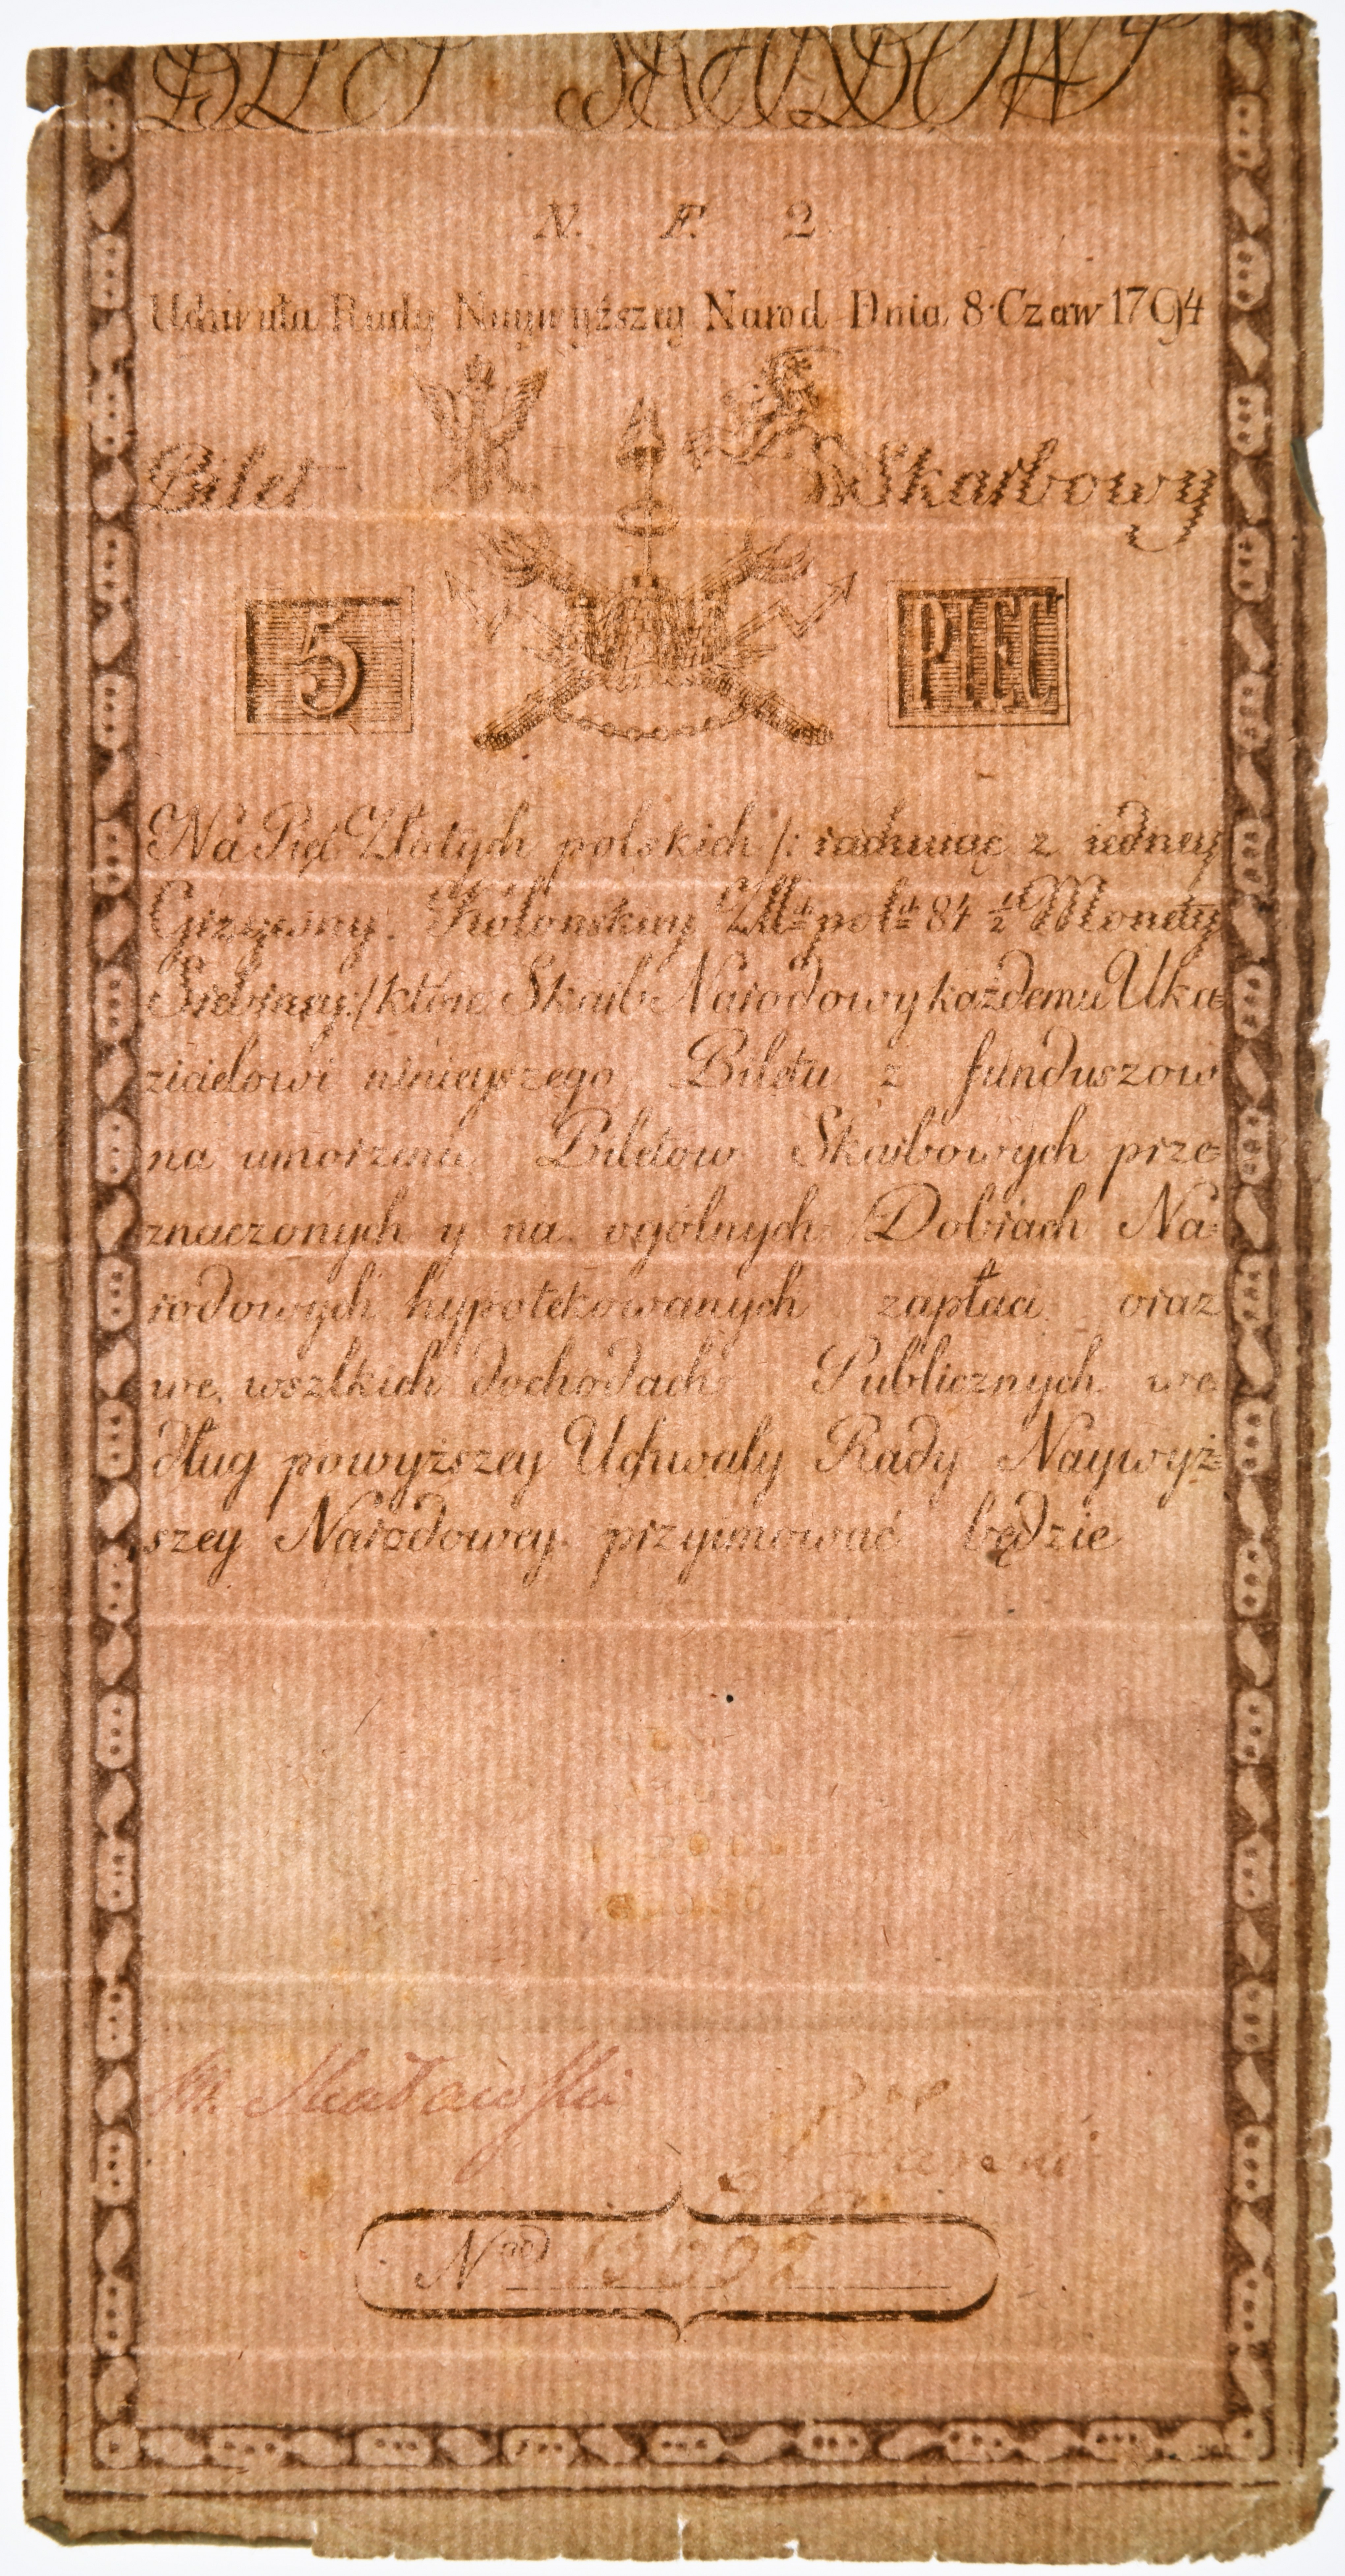 N. F. 2
Uchwała Rady Naywyższey Narod Dnia 8 Czerw 1794
Bilet Skarbowy
5 PIĘC
Na Pięć Złotych polskich /: rachuiąc z iedney
Grzywny Kolońskiey Złłt polt 84 1/2 Monety
Srebrney :/ które Skarb Narodowy każdemu Uka=
zicielowi ninieyszego Biletu z funduszow
na umorzenie Biletow Skarbowych prze=
znaczonych y na ogólnych Dobrach Na=
rodowych hypotekowanych zapłaci oraz
we wszlkich dochodach Publicznych we
dług powyższey Uchwały Rady Naywyż=
szey Narodowey przyimować będzie
Nro